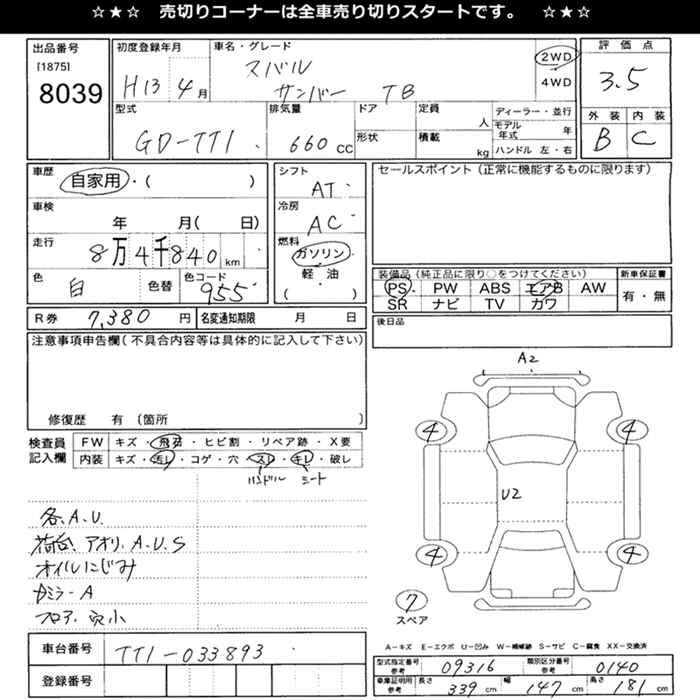 ☆★☆ 売切りコーナーは全車売り切りスタートです。 ☆★☆
出品番号
[1875]
8039
初度登録年月
H13 4月
車名・グレード
スバル
サンバー TB
2WD
4WD
評価点
3.5
外装 内装
B C
型式
GD-TT1
排気量
660 CC
ドア
形状
定員
人
積載
kg
ディーラー・並行
モデル年式 年
ハンドル 左・右
車歴
自家用・( )
車検
年 月( 日)
走行
8万4千840km
色
白
色替
色コード
955
シフト
AT
冷房
AC
燃料
ガソリン
軽油
( )
セールスポイント(正常に機能するものに限ります)
装備品(純正品に限り○をつけてください)
PS PW ABS エアB AW
SR ナビ TV カワ
新車保証書
有・無
R券 7,380円
名変通知期限 月 日
後日品
注意事項申告欄(不具合内容等は具体的に記入して下さい)
修復歴 有 (箇所 )
検査員
記入欄
FW キズ・飛石・ヒビ割・リペア跡・X要
内装 キズ・汚レ・コゲ・穴・スレ・キレ・破レ
ハンドル シート
各A.U.
荷台、アオリ、A.U.S
オイルにじみ
Dミラ-A
フロア、穴小
A2
4
4
U2
4
4
7
スペア
A-キズ E-エクボ U-凹み W-補修跡 S-サビ C-腐食 XX-交換済
車台番号
TT1-033893
登録番号
型式指定番号
参考
09316
類別区分番号
参考
0140
車庫証明用
参考
長さ 339 cm
幅 147 cm
高さ 181 cm